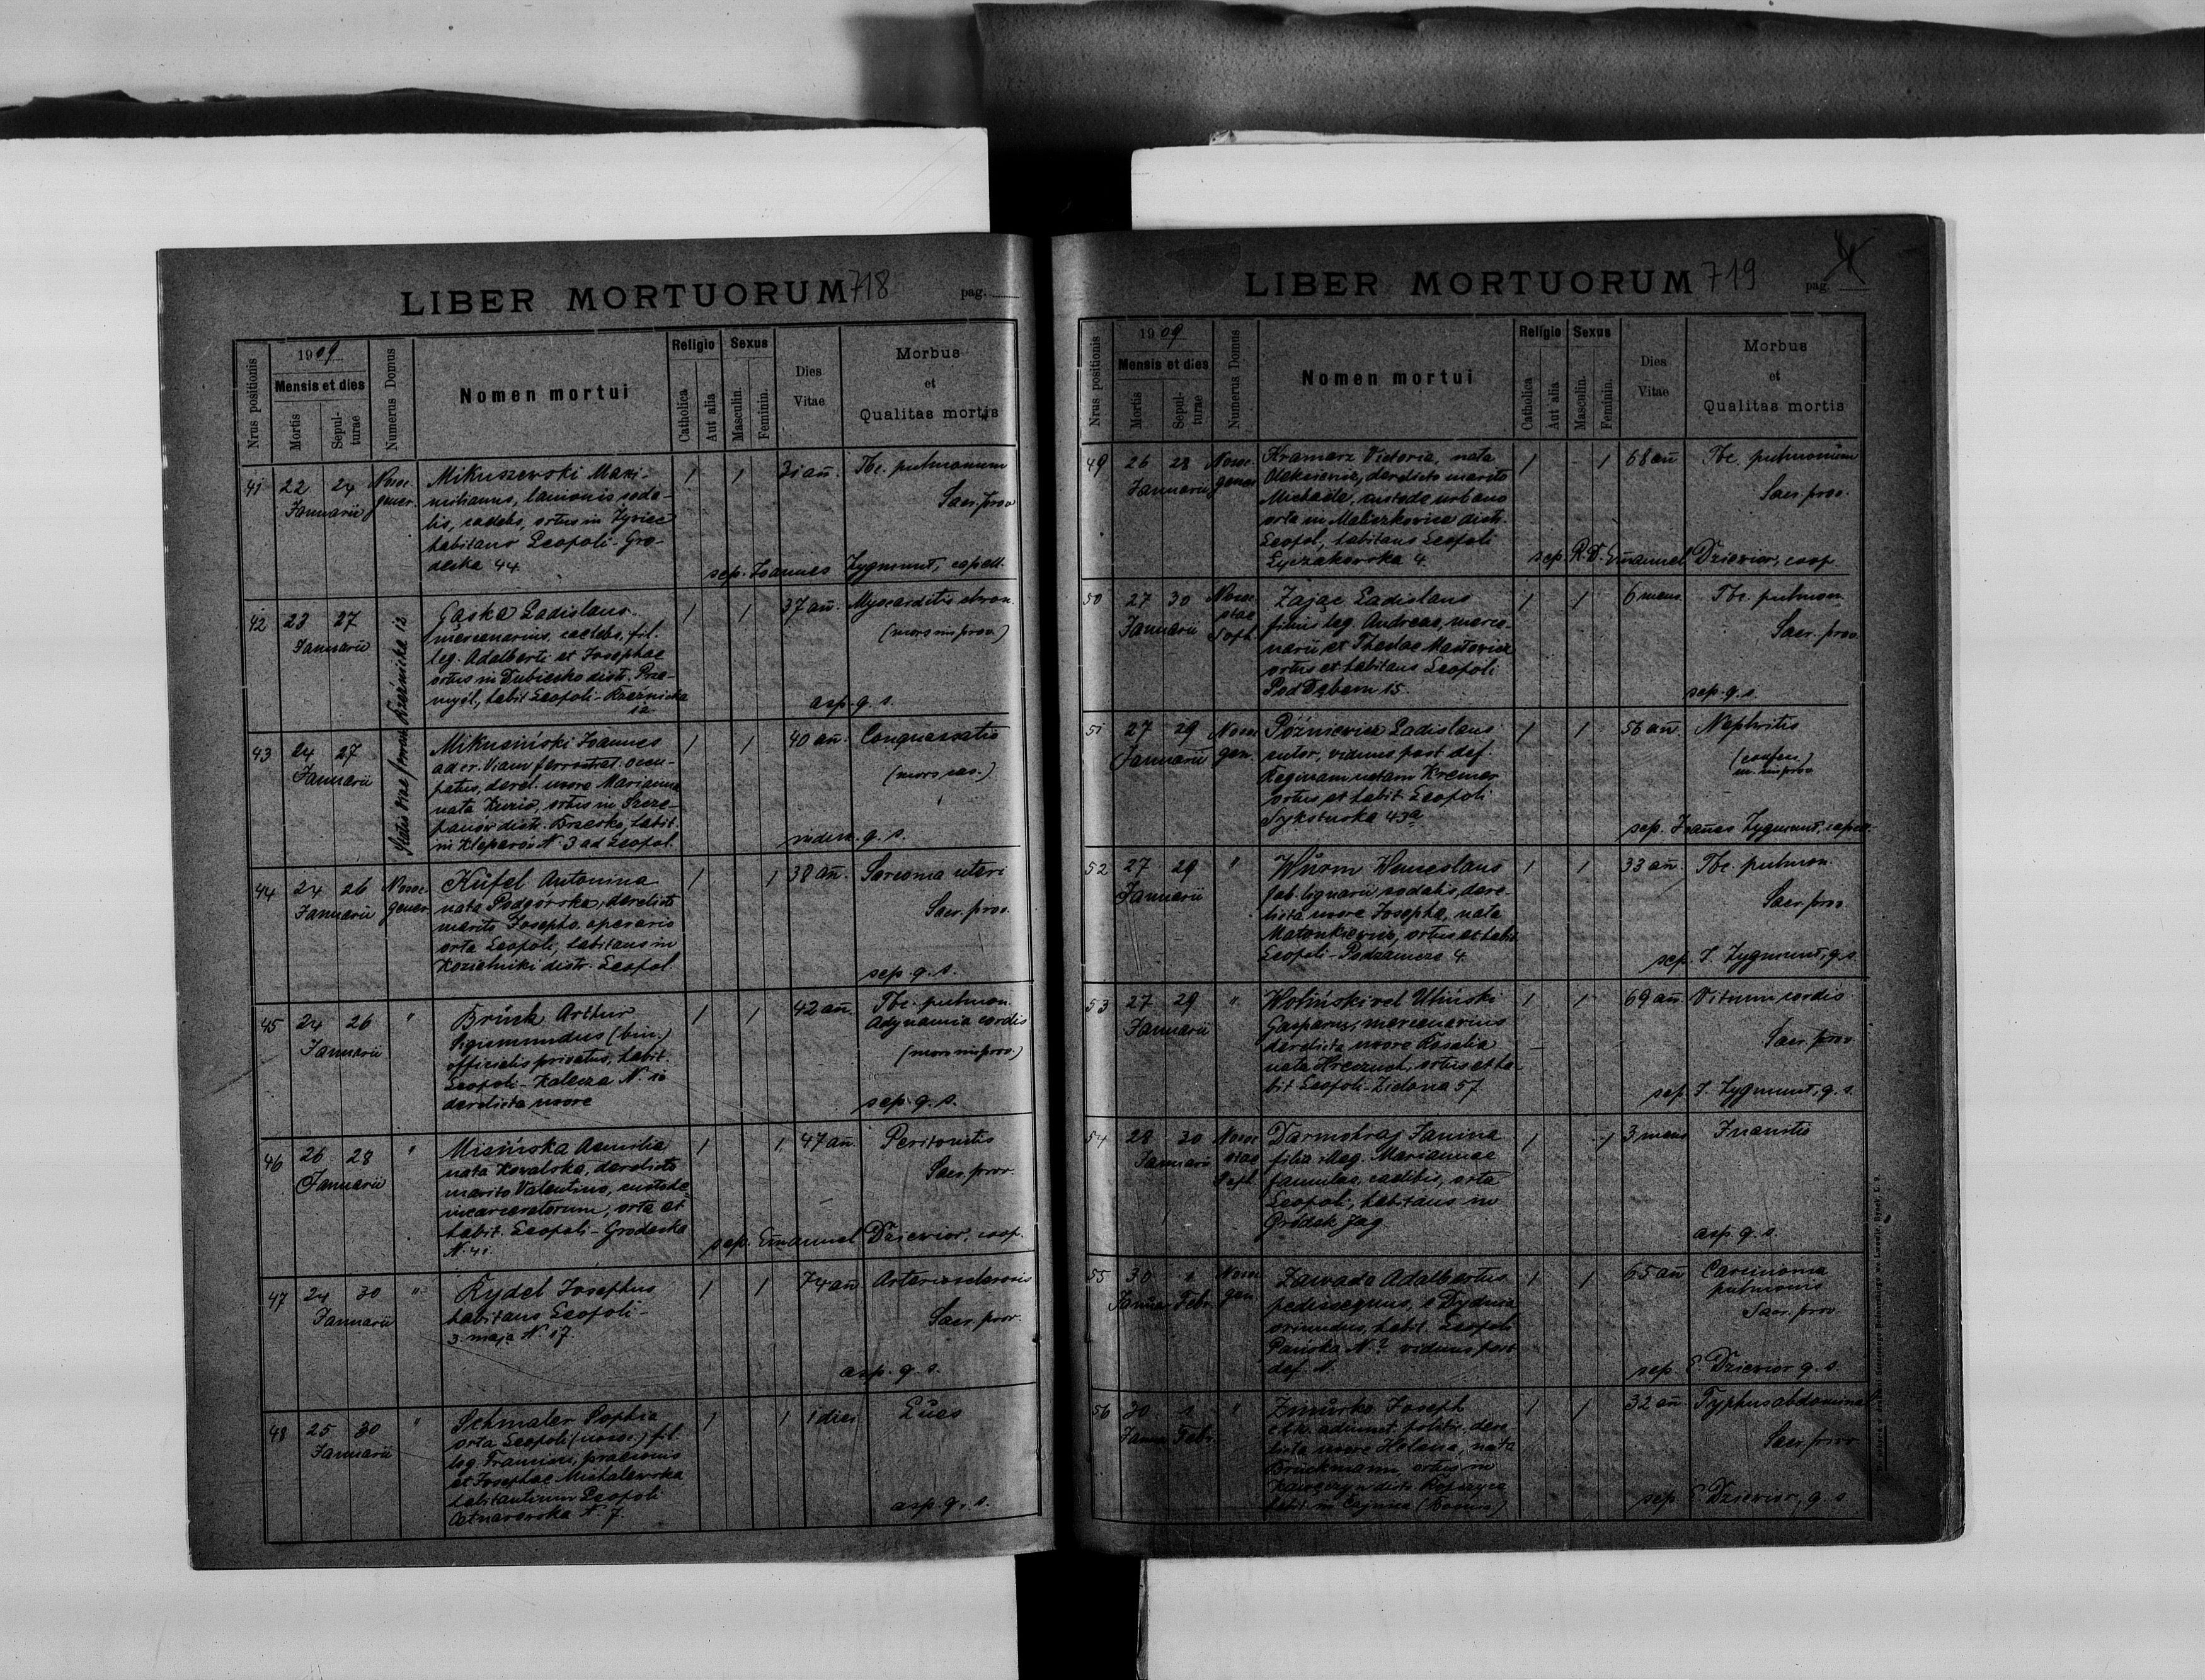 LIBER MORTUORUM 718 pag.
Nrus positionis
1909
Mensis et dies
Mortis
Sepulturae
Numerus Domus
Nomen mortui
Religio
Catholica
Aut alia
Sexus
Masculin.
Feminin.
Dies Vitae
Morbus et Qualitas mortis
41 22 24 Nosoc. Mikuszewski Maxi- 1 1 31 añ. Tbc. pulmonum
Januarii gener. milianus, lanionis soda- Sacr. prov
lis, caelebs, ortus in Żywiec
habitans Leopoli - Gro-
decka 44 sep. Joannes Zygmunt, capell.
42 23 27 Gąska Ladislaus 1 1 37 añ. Myocarditis chron.
Januarii mercenarius, caelebs, fil. (mors improv.)
leg. Adalberti et Josephae
ortus in Dubiecko distr. Prze-
myśl, habit Leopoli - Rzeźnicka
12 asp. g. s.
43 24 27 Mikusiński Joannes 1 1 40 añ. Conquassatio
Januarii ad cr. Viam ferr. occu- (mors cas.)
patus, derel. uxore Marianna
nata Kuzio, ortus in Szcze-
panów distr. Brzesko, habit.
in Kleparów N. 3 ad Leopol. g. s.
44 24 26 Nosoc. Küfel Antonina 1 1 38 añ. Sarcoma uteri
Januarii gener nata Podgórska, derelicto Sacr. prov.
marito Josepho, operario
orta Leopoli, habitans in
Kozielniki distr. Leopol. sep. g. s.
45 24 26 " Brück Arthur 1 1 42 añ. Tbc. pulmon.
Januarii Sigismundus (bin.) Adynamia cordis
officialis privatus, habit. (mors improv.)
Leopoli - Kalecza N. 10
derelicta uxore sep. g. s.
46 26 28 " Misińska Aemilia 1 1 47 añ. Peritonitis
Januarii nata Kowalska, derelicto Sacr. prov.
marito Valentino, custode
incarceratorum, orta et
habit. Leopoli - Grodecka sep. Emanuel Dziewior, coop.
N. 41
47 24 30 " Rydel Josephus 1 1 74 añ. Arteriosclerosis
Januarii habitans Leopoli - Sacr. prov.
3. maja N. 17.
asp. g. s.
48 25 30 " Schmaler Sophia 1 1 1 dies Lues
Januarii orta Leopoli (nosoc.) fil.
leg. Francisci, praeconis
et Josephae Michalewska
habitantium Leopoli
N. 7. asp. g. s.
LIBER MORTUORUM 719 pag.
Nrus positionis
1909
Mensis et dies
Mortis
Sepulturae
Numerus Domus
Nomen mortui
Religio
Catholica
Aut alia
Sexus
Masculin.
Feminin.
Dies Vitae
Morbus et Qualitas mortis
49 26 28 Nosoc. Kramarz Victoria, nata 1 1 68 añ Tbc. pulmonum
Januarii gener. derelicto marito Sacr. prov.
Michaële, custode urbano
orta in Maliczkowice distr.
Leopol, habitans Leopoli
Łyczakowska 4. sep. R. D. Emanuel Dziewior, coop
50 27 30 Nosoc. Zając Ladislaus 1 1 6 mens. Tbc. pulmon
Januarii stae filius leg. Andreae, merce- Sacr. prov
Soph. narii et Theclae
ortus et habitans Leopoli
Pod Dębem 15. sep. g. s.
51 27 29 Nosoc. Poźniewicz Ladislaus 1 1 56 añ. Nephritis
Januarii gen. sutor, viduus post def.
Reginam natam Kremer
ortus et habit. Leopoli
Sykstuska 43a sep. Joañes Zygmunt, capell.
52 27 29 " Würm Venceslaus 1 1 33 añ. Tbc. pulmon.
Januarii fab. lignarii sodalis, dere- Sacr. prov.
licta uxore Josepha, nata
ortus et habit
Leopoli - Podzamcze 4. sep. J. Zygmunt, g. s.
53 27 29 " Woliński vel Uliński 1 1 69 añ. Vitium cordis
Januarii Gasparus, mercenarius Sacr. prov.
derelicta uxore Rosalia
nata ortus et ha-
bit Leopoli - Zielona 57 sep. J. Zygmunt, g. s.
54 28 30 Nosoc. Darmohraj Janina 1 1 3 mens Inanitio
Januarii stae filia illeg. Mariannae
Soph. famulae, caelibis, orta
Leopoli, habitans in
Gródek Jag. asp. g. s.
55 30 1 Nosoc. Zawada Adalbertus 1 1 65 añ Carcinoma
Januar. Febr. gen. pedissequus, e Dydnia pulmonis
oriundus, habit. Leopoli Sacr. prov.
Pańska N.? viduus post
def. N. sep. E. Dziewior g. s.
56 30 1 " Zmurko Joseph 1 1 32 añ. Typhus abdominal.
Januar. Febr. c. k. adiunct. politic. dere- Sacr. prov
licta uxore Helena, nata
Brückmann, ortus in
distr. Ropczyce
habit. in (Bosnia) sep. E. Dziewior, g. s.